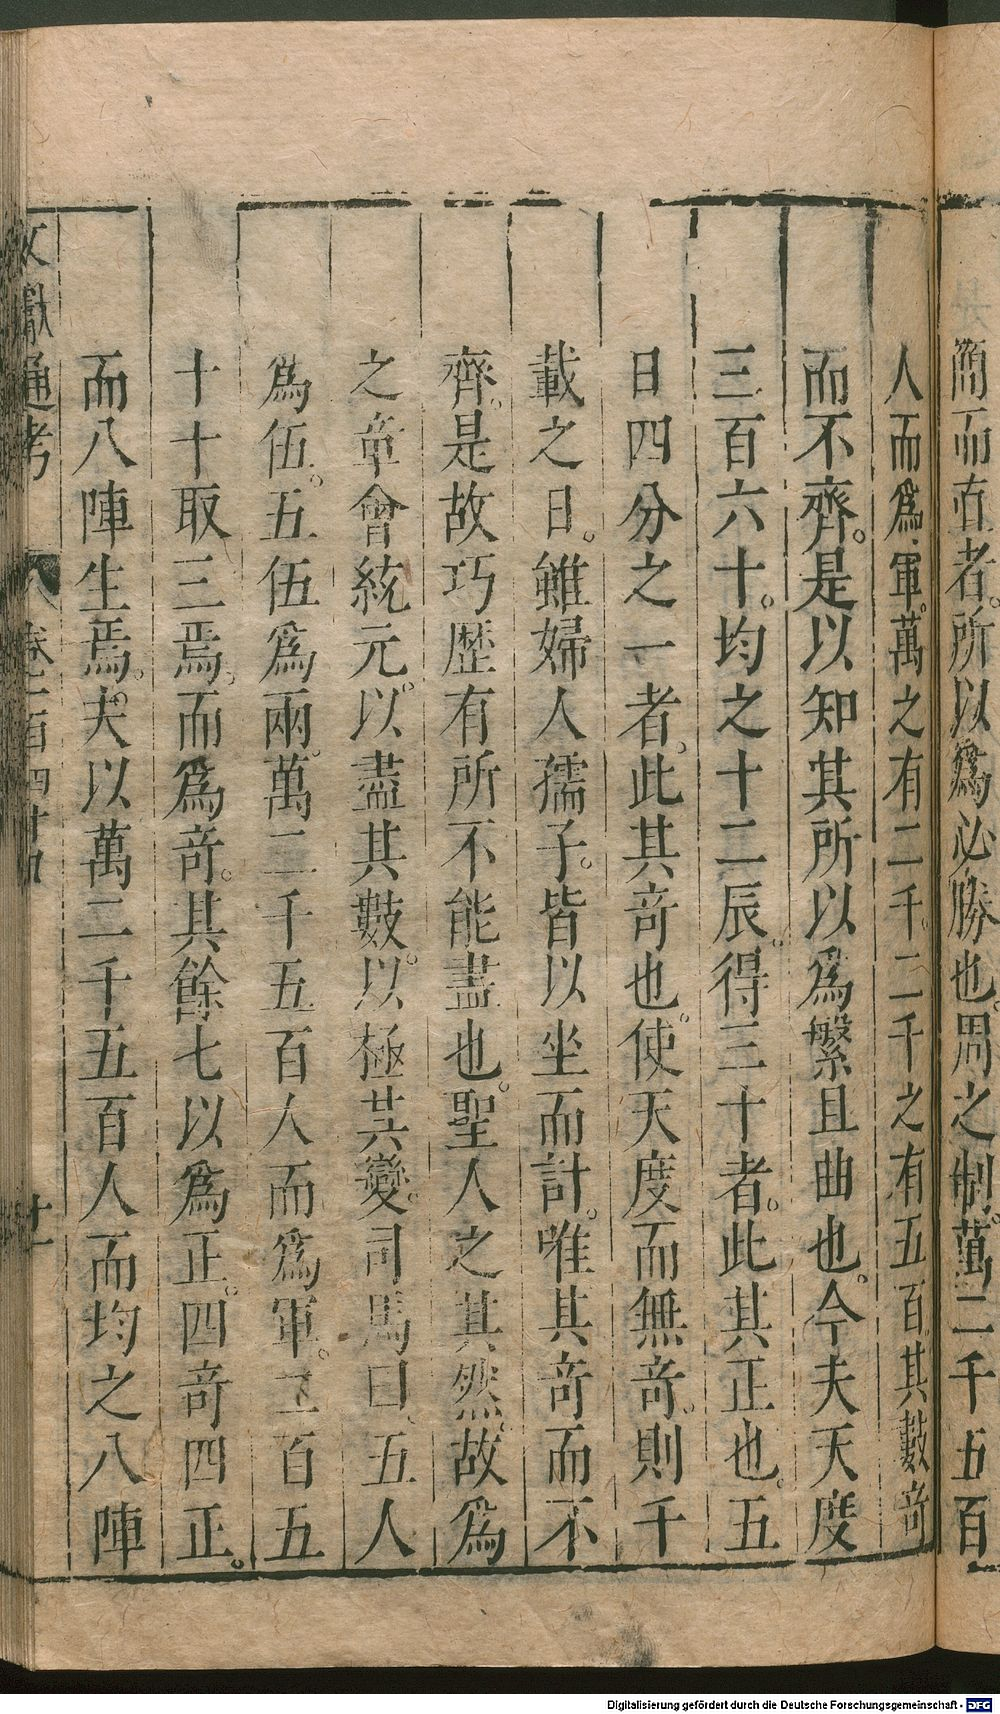 簡而直者。所以爲必勝也。周之制。萬二千五百
人而爲軍。萬之有二千。二千之有五百。其數奇
而不齊。是以知其所以爲繁且曲也。今夫天度
三百六十。均之十二辰。得三十者。此其正也。五
日四分之一者。此其奇也。使天度而無奇。則千
載之日。雖婦人孺子。皆以坐而計。唯其奇而不
齊。是故巧歷有所不能盡也。聖人之其然。故爲
之章會統元。以盡其數。以極其變。司馬曰、五人
爲伍。五伍爲兩。萬二千五百人而爲軍。二百五
十十取三焉。而爲奇。其餘七以爲正。四奇四正。
而八陣生焉。夫以萬二千五百人而均之八陣
文獻通考
卷一百四十九
十一
Digitalisierung gefördert durch die Deutsche Forschungsgemeinschaft - DFG